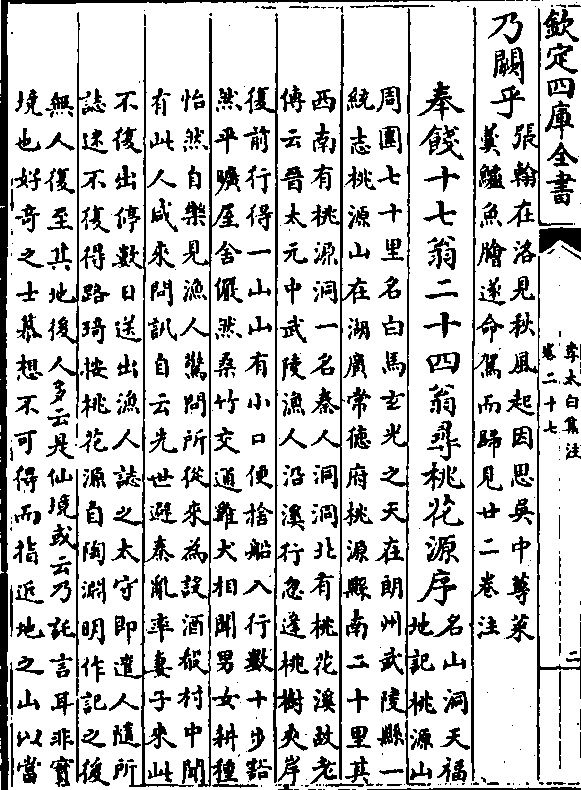 欽定四庫全書
李太白集注
卷二十七
二
乃闕乎
張翰在洛見秋風起因思吳中蓴菜
羮鱸魚膾遂命駕而歸見廿二卷注
奉餞十七翁二十四翁尋桃花源序
名山洞天福
地記桃源山
周圍七十里名白馬玄光之天在朗州武陵縣一
統志桃源山在湖廣常德府桃源縣南二十里其
西南有桃源洞一名秦人洞洞北有桃花溪故老
傳云晉太元中武陵漁人沿溪行忽逢桃樹夾岸
復前行得一山山有小口便捨船入行數十步豁
然平曠屋舍儼然桑竹交通雞犬相聞男女耕種
怡然自樂見漁人驚問所從來為設酒殽村中聞
有此人咸來問訊自云先世避秦亂率妻子來此
不復出停數日送出漁人誌之太守即遣人隨所
誌迷不復得路琦按桃花源自陶淵明作記之後
無人復至其地後人多云是仙境或云乃託言耳非實
境也好奇之士慕想不可得而指近地之山以當